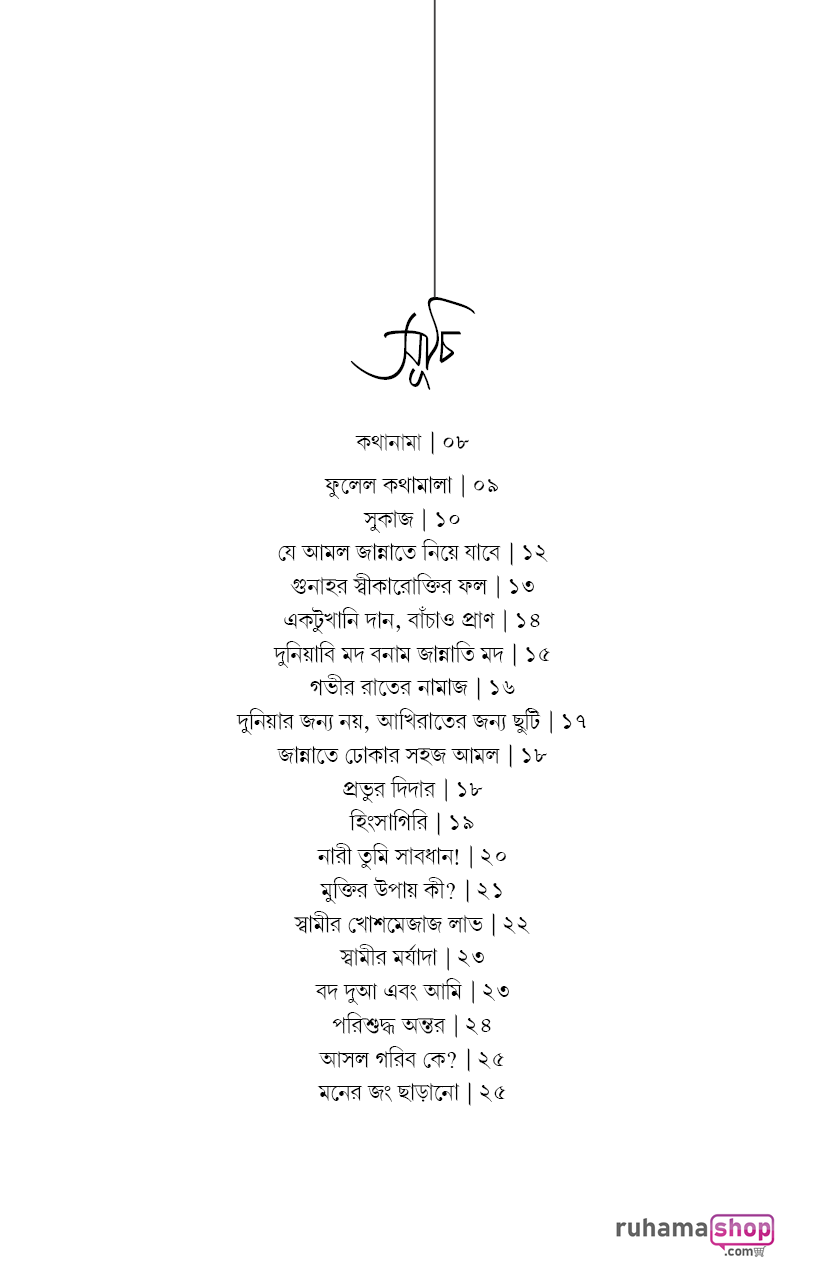 সূচি
কথানামা | ০৮
ফুলেল কথামালা | ০৯
সুকাজ | ১০
যে আমল জান্নাতে নিয়ে যাবে | ১২
গুনাহর স্বীকারোক্তির ফল | ১৩
একটুখানি দান, বাঁচাও প্রাণ | ১৪
দুনিয়াবি মদ বনাম জান্নাতি মদ | ১৫
গভীর রাতের নামাজ | ১৬
দুনিয়ার জন্য নয়, আখিরাতের জন্য ছুটি | ১৭
জান্নাতে ঢোকার সহজ আমল | ১৮
প্রভুর দিদার | ১৮
হিংসাগিরি | ১৯
নারী তুমি সাবধান! | ২০
মুক্তির উপায় কী? | ২১
স্বামীর খোশমেজাজ লাভ | ২২
স্বামীর মর্যাদা | ২৩
বদ দুআ এবং আমি | ২৩
পরিশুদ্ধ অন্তর | ২৪
আসল গরিব কে? | ২৫
মনের জং ছাড়ানো | ২৫
ruhamashop
.com